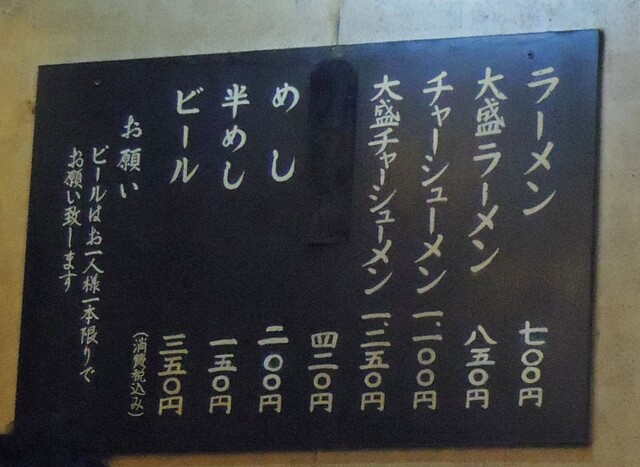 ラーメン 七〇〇円
大盛ラーメン 八五〇円
チャーシューメン 一、一〇〇円
大盛チャーシューメン 一、二五〇円
四二〇円
めし 二〇〇円
半めし 一五〇円
ビール 三五〇円
(消費税込み)
お願い
ビールはお一人様一本限りで
お願い致します